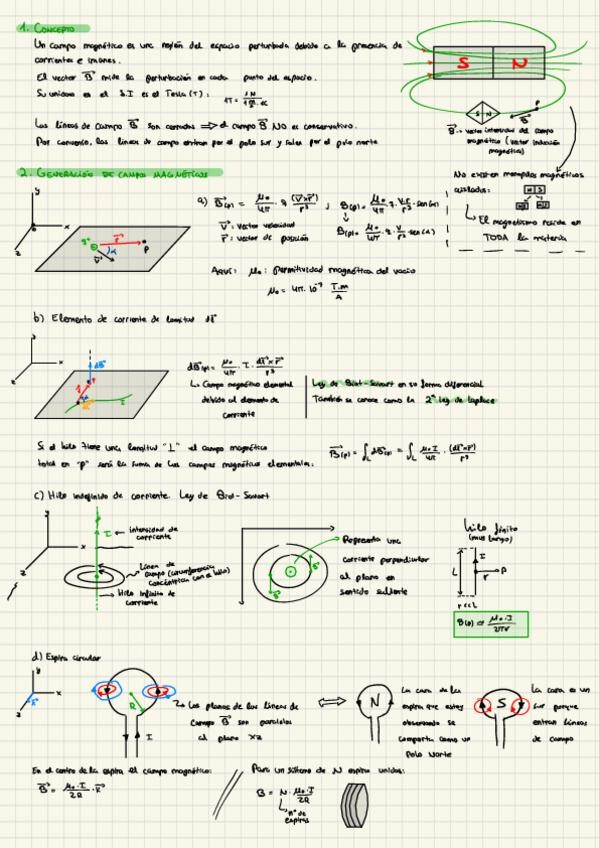 1. CONCEPTO
Un campo magnético es una región del espacio perturbada debido a la presencia de
corrientes e imanes.
El vector B⃗ mide la perturbación en cada punto del espacio.
Su unidad en el S.I es el Tesla (T):
S N
S N
P
B⃗
B⃗: vector intensidad del campo
magnético (vector inducción
magnética)
Las líneas de campo B⃗ son cerradas ⟹ el campo B⃗ NO es conservativo.
Por convenio, las líneas de campo entran por el polo sur y salen por el polo norte
No existen monopolos magnéticos
aislados:
N S
El magnetismo reside en
TODA la materia
2. GENERACIÓN DE CAMPOS MAGNÉTICOS
y
x
z
r⃗
P
α
v⃗
V⃗: vector velocidad
r⃗: vector de posición
Aquí: μ₀: permitividad magnética del vacío
μ₀ = 4π·10⁻⁷ T.m/A
b) Elemento de corriente de longitud dl⃗
y
x
z
dB⃗
I
dB⃗(p) = μ₀/4π · I · (dl⃗×r⃗)/r³
↳ Campo magnético elemental
debido al elemento de
corriente
Ley de Biot-Savart en su forma diferencial
También se conoce como la 2ª ley de Laplace
Si el hilo tiene una longitud "L" el campo magnético
total en "p" será la suma de los campos magnéticos elementales:
B⃗(p) = ∫L dB⃗(p) = ∫L μ₀·I/4π · (dl⃗×r⃗)/r³
c) Hilo indefinido de corriente. Ley de Biot-Savart
y
x
z
I
intensidad de
corriente
Línea de
campo (circunferencia
concéntrica con el hilo)
Hilo infinito de
corriente
B⃗
B⃗
Representa una
corriente perpendicular
al plano en
sentido saliente
hilo finito
(muy largo)
I
L
r
P
r<<L
B(p) = μ₀·I/2πr
d) Espira circular
y
x
R
I
Los planos de las líneas de
campo B⃗ son paralelos
al plano XZ
N
La cara de la
espira que estoy
observando se
comporta como un
Polo Norte
S
La cara es un
sur porque
entran líneas
de campo
En el centro de la espira el campo magnético:
B⃗ = μ₀·I/2R · k⃗
Para un sistema de N espiras unidas:
B = N · μ₀·I/2R
nº de
espiras